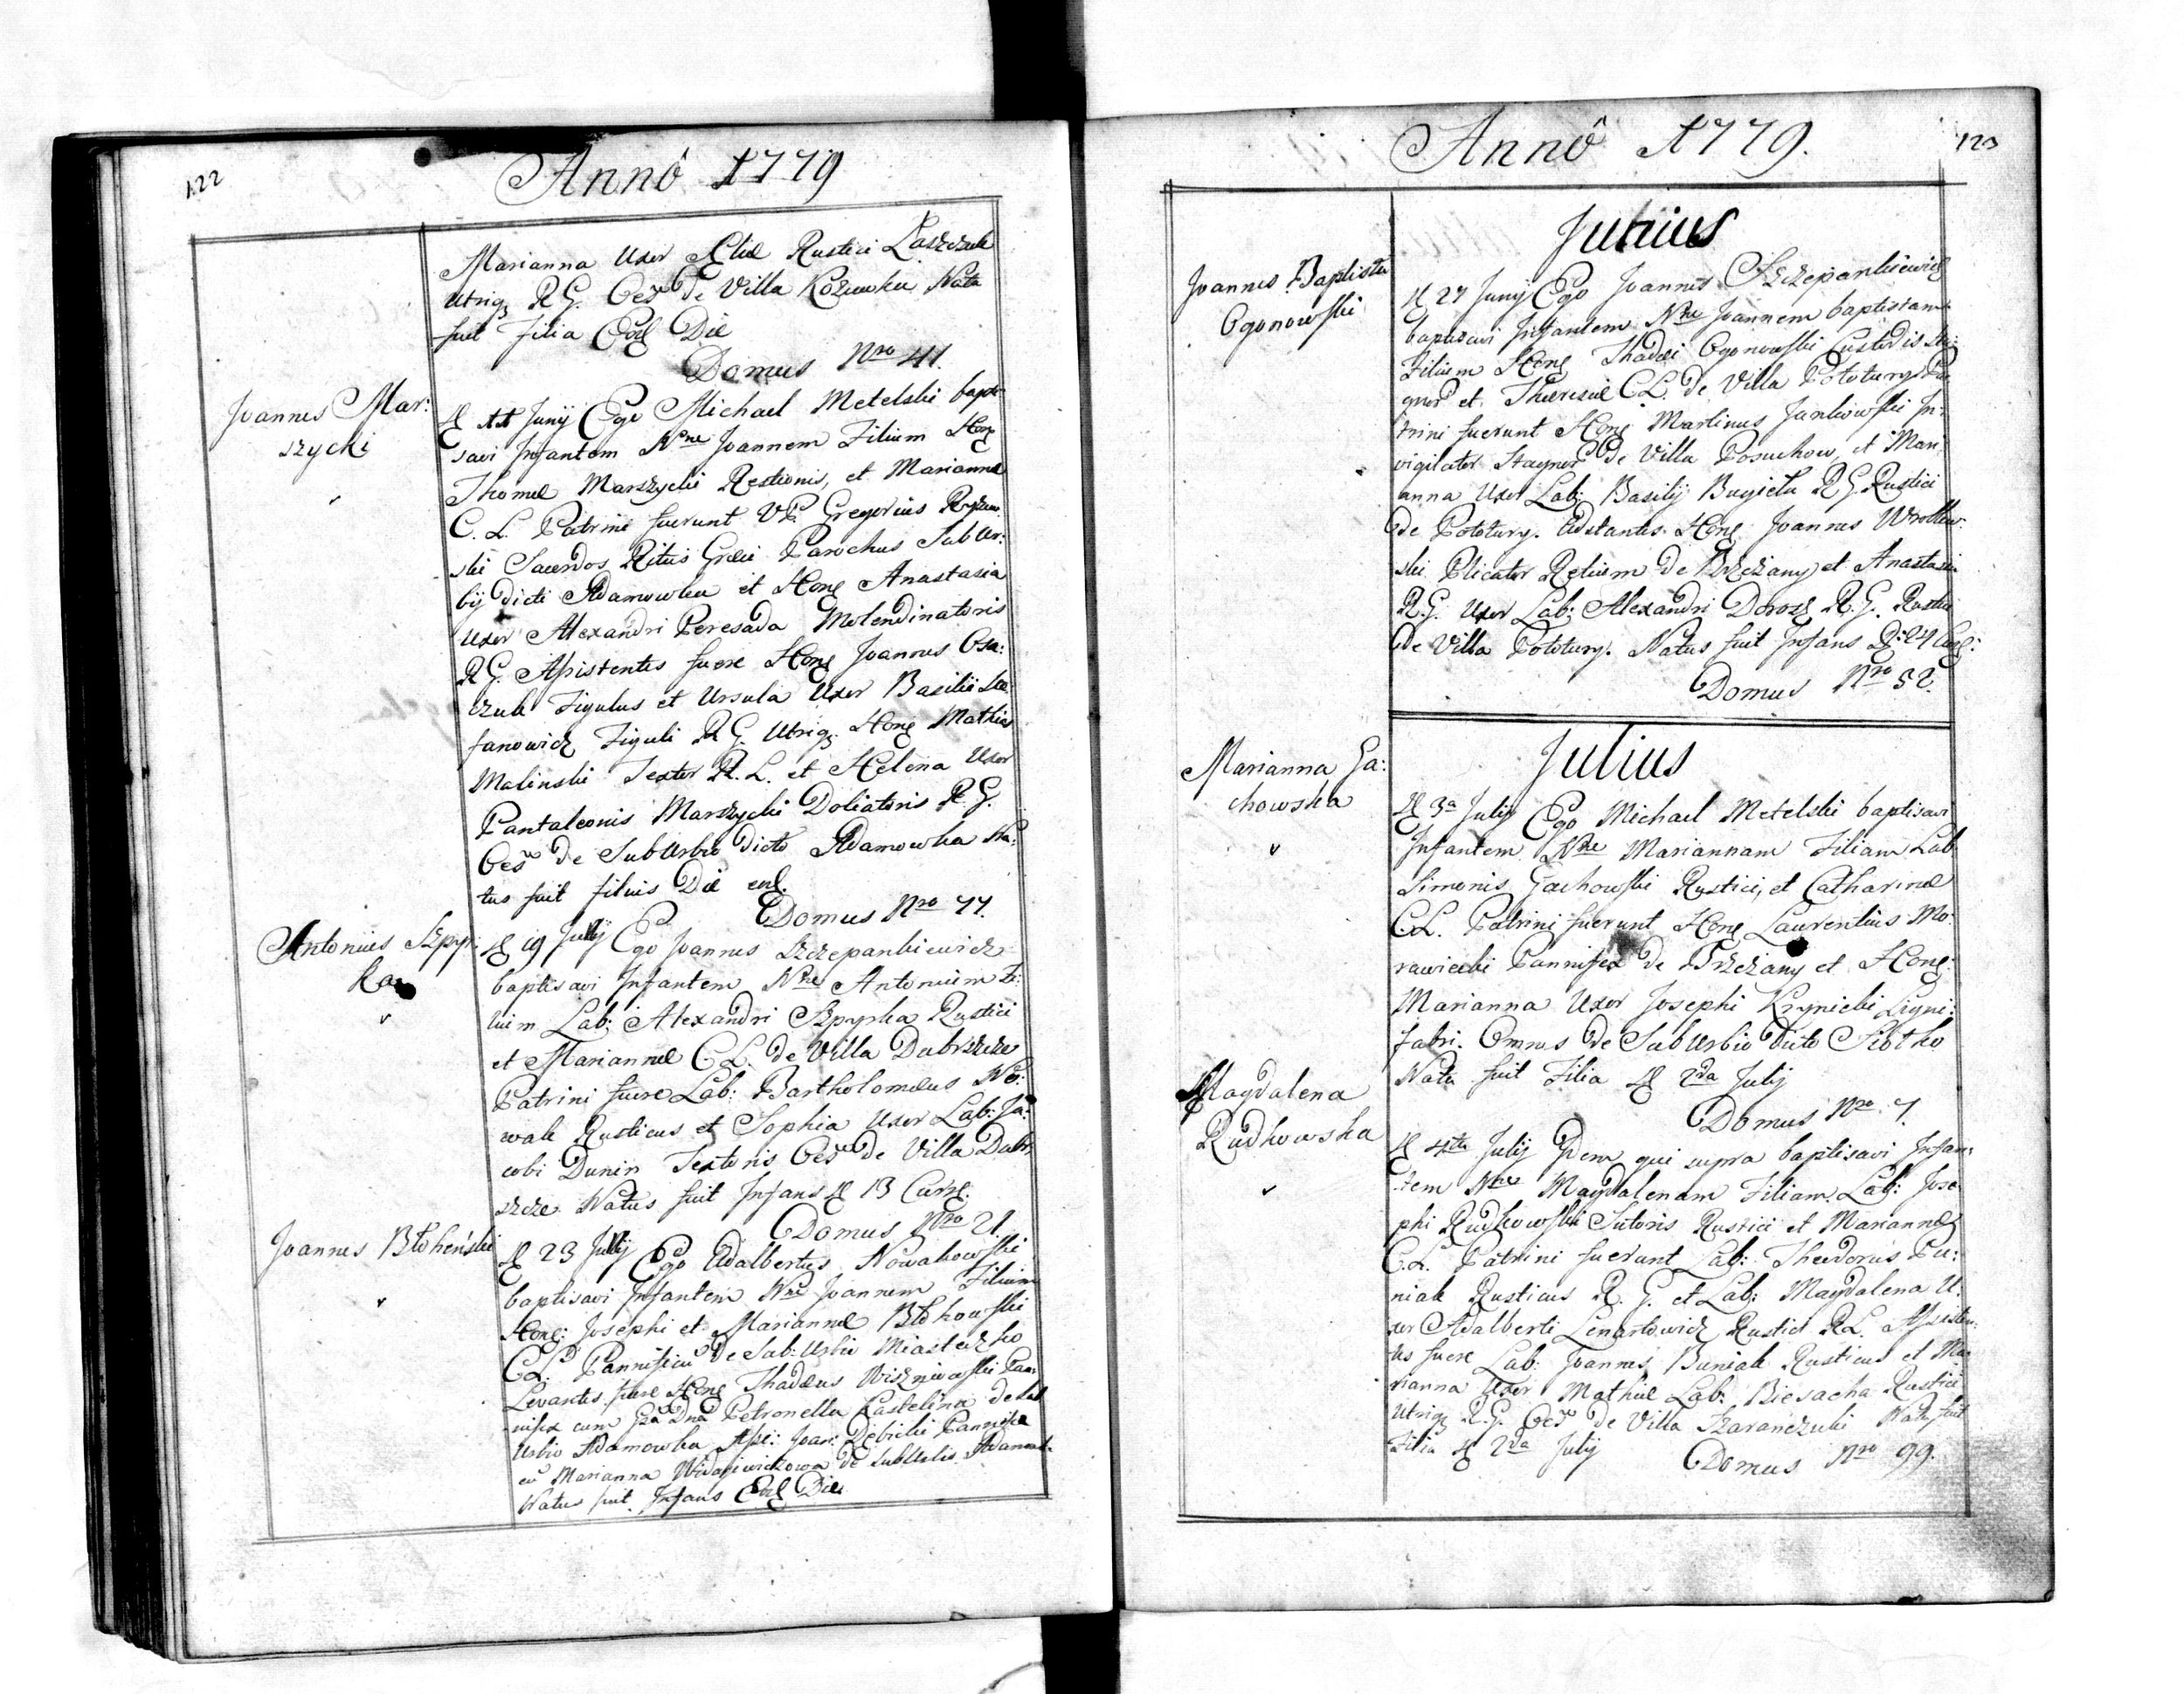 122
Annô 1779
Marianna Uxor Eliæ Rustici Laszczuk
Utriq; R G. Oēs de Villa Kozuwka Nata
fuit Filia Eod Die
Domus Nro 41.
Joannes Mar:
szycki
D 11 Junij Ego Michael Metelski bapti
savi Infantem Nne Joannem Filium Hon
Thomæ Marszycki Restionis, et Mariannæ
C. L. Patrini fuerunt VP. Gregorius
ski Sacerdos Ritus Græci Parochus SubUr:
bij dicti Adamowka et Hone Anastasia
Uxor Alexandri Peresada Molendinatoris
RG. Assistentes fuere Hone Joannes Osa:
czuk Figulus et Ursula Uxor Basilii Ste
fanowicz Figuli R G. Utriq; Hone Mathias
Malinski Textor R. L. et Helena Uxor
Pantaleonis Marszycki Doliatoris R. G.
Oēs de SubUrbio dicto Adamowka Na:
tus fuit filius Die eod.
Domus Nro 77.
Antonius Szpyr:
ka
D 19 Junij Ego Joannes Szczepankiewicz
baptisavi Infantem Nne Antonium Fi:
lium Lab: Alexandri Szpyrka Rustici
et Mariannæ C. L. de Villa Dubrzcze
Patrini fuere Lab: Bartholomæus No:
wak Rusticus et Sophia Uxor Lab: Ja:
cobi Dunin Textoris Oēs de Villa Dubr
szcze Natus fuit Infans D 13 Curre.
Domus Nro 21.
Joannes Błoheński
D 23 Junij Ego Adalbertus Nowakowski
baptisavi Infantem Nne Joannem Filium
Hone: Josephi et Mariannæ Błohowski
C L. Pannificū de Sub: Urbio Miasteczko
Levantes fuere Hone Thadæus Wiszniowski Pan
nifex cum Gsa Dna Petronella Kastelina de Sub
Urbio Adamowka Assi: Joan: Dębicki Pannifex
cū Marianna Widajewiczowa de SubUrbio Adamow
Natus fuit Infans Eod Die
Annô 1779.
123
Junius
Joannes Baptista
Ogonowski
D 27 Junij Ego Joannes Szczepankiewicz
baptisavi Infantem Nne Joannem baptistam
Filium Hone Thadæi Ogonowski Custodis Sta:
gnor et Theresiæ C L. de Villa Potutury Pa
trini fuerunt Hone Martinus Jankowski In:
vigilator Stagnor de Villa Posuchow, et Mari
anna Uxor Lab: Basilij Bugieta R G Rustici
de Potutury. Adstantes Hone Joannes Wrollew:
ski Plicator Retium de Brzeżany et Anastasia
R.G. Uxor Lab: Alexandri Dorosz R. G. Rustici
de Villa Potutury. Natus fuit Infans D: 24
Domus Nro 52.
Julius
Marianna Ga:
chowska
D 3a Julij Ego Michael Metelski baptisavi
Infantem Nne Mariannam Filiam Lab
Simonis Gachowski Rustici, et Catharinæ
C.L. Patrini fuerunt Hone Laurentius Mo:
rawiecki Pannifex de Brzeżany et Hone:
Marianna Uxor Josephi Krynicki Ligni:
fabri. Omnes de SubUrbio Dicto Siołko
Nata fuit Filia D 2da Julij
Domus Nro 7.
Magdalena
Rudkowska
D 4ta Julij Idem qui supra baptisavi Infan:
tem Nne Magdalenam Filiam Lab: Jose
phi Rudkowski Sutoris Rustici et Mariannæ
C.L. Patrini fuerunt Lab: Theodorus Bu:
niak Rusticus R. G. et Lab: Magdalena U:
xor Adalberti Lenartowicz Rustici RL. Assisten:
tes fuere Lab: Joannes Buniak Rusticus et Ma
rianna Uxor Mathiæ Lab: Biesacha Rustici
Utriq; R.G. Oēs de Villa Szaranczuki Nata fuit
Filia D 2da Julij
Domus Nro 99.